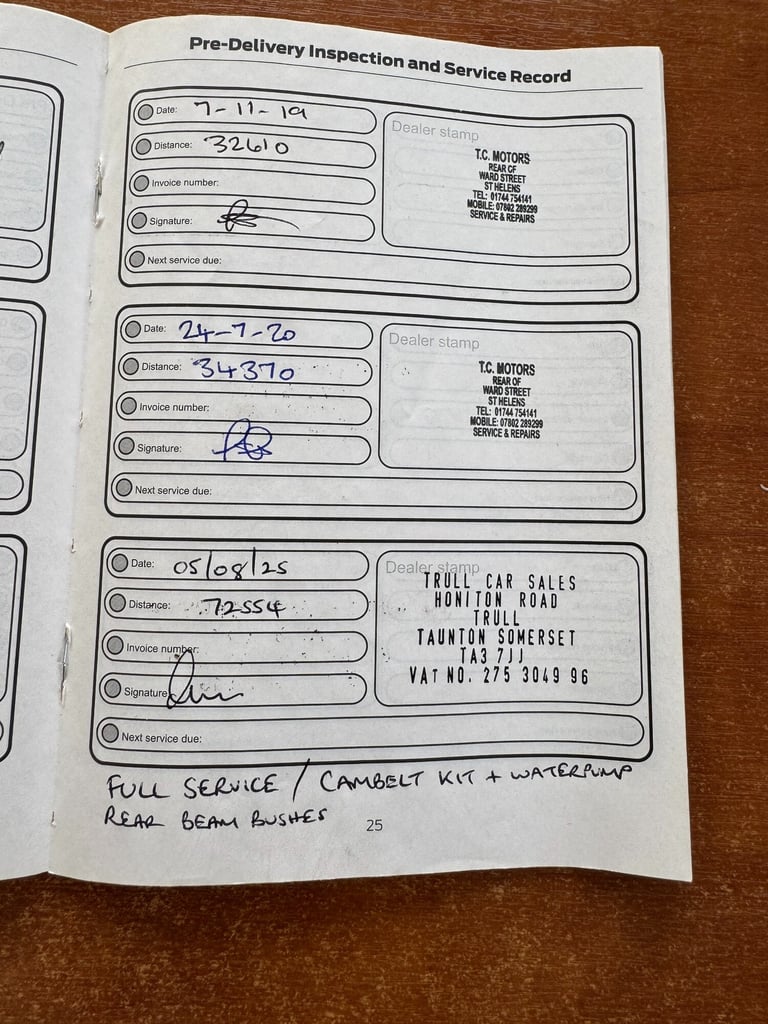 Pre-Delivery Inspection and Service Record
Date: 7-11-19
Distance: 32610
Invoice number:
Signature:
Next service due:
Dealer stamp
T.C. MOTORS
REAR OF
WARD STREET
ST HELENS
TEL: 01744 754141
MOBILE: 07802 289299
SERVICE & REPAIRS
Date: 24-7-20
Distance: 34370
Invoice number:
Signature:
Next service due:
Dealer stamp
T.C. MOTORS
REAR OF
WARD STREET
ST HELENS
TEL: 01744 754141
MOBILE: 07802 289299
SERVICE & REPAIRS
Date: 05/08/25
Distance: 72554
Invoice number:
Signature
Next service due:
Dealer stamp
TRULL CAR SALES
HONITON ROAD
TRULL
TAUNTON SOMERSET
TA3 7JJ
VAT NO. 275 3049 96
FULL SERVICE / CAMBELT KIT + WATERPUMP
REAR BEAM BUSHES
25